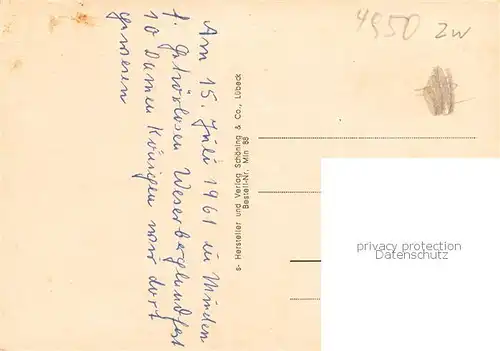 4950 ZW
Am 15. Juli 1961 in Minden
1. Gehörlosen Weserberglandfest
10 Damen Königen wir dort
gewesen
s- Hersteller und Verlag Schöning & Co., Lübeck
Bestell-Nr. Min 88
privacy protection
Datenschutz